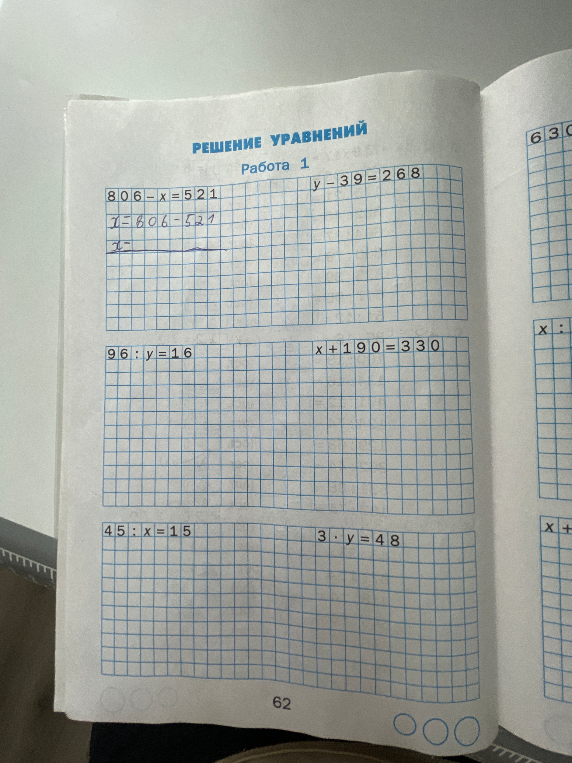 РЕШЕНИЕ УРАВНЕНИЙ
Работа 1
806-x=521
x=806-521
x=
y-39=268
96:y=16
x+190=330
45:x=15
3·y=48
62
630
x:
x+